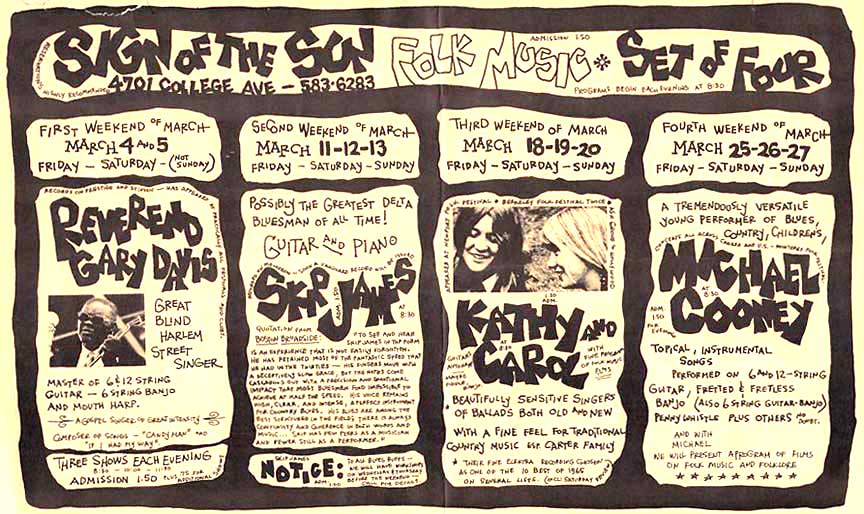 SIGN OF THE SUN FOLK MUSIC * SET OF FOUR
ADMISSION 1.50
4701 COLLEGE AVE — 583-6283
PROGRAMS BEGIN EACH EVENING AT 8:30
RESERVATIONS
HIGHLY RECOMMENDED
FIRST WEEKEND OF MARCH
MARCH 4 AND 5
FRIDAY — SATURDAY — (NOT SUNDAY)
RECORDS ON PRESTIGE AND STINSON — HAS APPEARED AT
REVEREND
GARY DAVIS
GREAT
BLIND
HARLEM
STREET
SINGER
MASTER OF 6 & 12 STRING
GUITAR — 6 STRING BANJO
AND MOUTH HARP.
A GOSPEL SINGER OF GREAT INTENSITY
COMPOSER OF SONGS — "CANDY MAN" AND
"IF I HAD MY WAY"
THREE SHOWS EACH EVENING
8:30 — 10:00 — 11:30
ADMISSION 1.50 PLUS .75 FOR ADDITIONAL
SECOND WEEKEND OF MARCH
MARCH 11-12-13
FRIDAY — SATURDAY — SUNDAY
POSSIBLY THE GREATEST DELTA
BLUESMAN OF ALL TIME!
GUITAR AND PIANO
SKIP
JAMES
ADM. 1.50
AT 8:30
QUOTATION FROM
BOSTON BROADSIDE: "TO SEE AND HEAR
SKIP JAMES IN TOP FORM
IS AN EXPERIENCE THAT IS NOT EASILY FORGOTTEN.
HE HAS RETAINED MOST OF THE FANTASTIC SPEED THAT
HE HAD IN THE THIRTIES — HIS FINGERS MOVE WITH
A DECEPTIVELY SLOW GRACE, BUT THE NOTES COME
CASCADING OUT WITH A PRECISION AND EMOTIONAL
IMPACT THAT MOST BLUESMEN FIND IMPOSSIBLE TO
ACHIEVE AT HALF THE SPEED. HIS VOICE REMAINS
HIGH, CLEAR, AND INTENSE, A PERFECT INSTRUMENT
FOR COUNTRY BLUES. HIS BLUES ARE AMONG THE
BEST STRUCTURED IN THE FIELD; THERE IS ALWAYS
CONTINUITY AND COHERENCE IN BOTH WORDS AND
MUSIC... SKIP HAS FEW PEERS AS A MUSICIAN
AND FEWER STILL AS A PERFORMER."
SKIP JAMES
NOTICE:
ADM. 1.50
TO ALL BLUES BUFFS —
WE WILL HAVE WORKSHOPS
ON WEDNESDAY & THURSDAY
BEFORE THE WEEKEND —
CALL FOR DETAILS
THIRD WEEKEND OF MARCH
MARCH 18-19-20
FRIDAY — SATURDAY — SUNDAY
APPEARED AT NEWPORT FOLK FESTIVAL * BERKELEY FOLK FESTIVAL TWICE *
1.50
ADM.
KATHY AND
CAROL
AT 8:30
GUITARS
AUTOHARP
BANJO
WITH
FILMS
BEAUTIFULLY SENSITIVE SINGERS
OF BALLADS BOTH OLD AND NEW
WITH A FINE FEEL FOR TRADITIONAL
COUNTRY MUSIC ESP. CARTER FAMILY
* THEIR FINE ELEKTRA RECORDING CHOSEN
AS ONE OF THE 10 BEST OF 1965
ON SEVERAL LISTS. (INCL. SATURDAY REVIEW)
FOURTH WEEKEND OF MARCH
MARCH 25-26-27
FRIDAY — SATURDAY — SUNDAY
A TREMENDOUSLY VERSATILE
YOUNG PERFORMER OF BLUES,
COUNTRY, CHILDRENS,
CONCERTS ALL ACROSS CANADA AND U.S. — MONTEREY FOLK FESTIVAL
MICHAEL
COONEY
AT 8:30
ADM.
1.50
TOPICAL, INSTRUMENTAL
SONGS
PERFORMED ON 6 AND 12-STRING
GUITAR, FRETTED & FRETLESS
BANJO (ALSO 6 STRING GUITAR-BANJO)
PENNYWHISTLE PLUS OTHERS NO DOUBT.
AND WITH
MICHAEL
WE WILL PRESENT A PROGRAM OF FILMS
ON FOLK MUSIC AND FOLKLORE